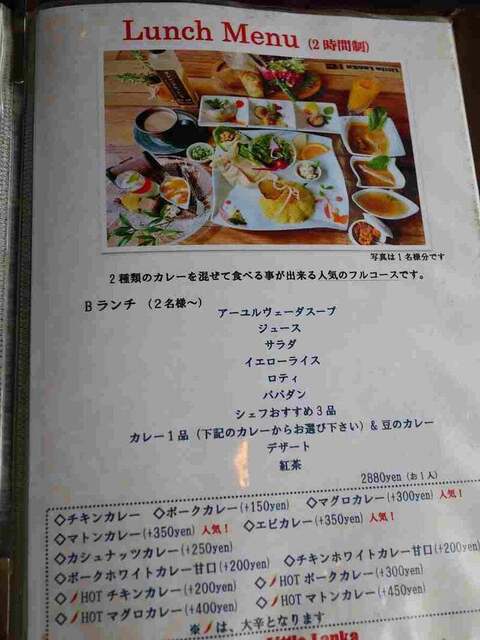 Lunch Menu (2時間制)
写真は1名様分です
2種類のカレーを混ぜて食べる事が出来る人気のフルコースです。
Bランチ (2名様~)
アーユルヴェーダスープ
ジュース
サラダ
イエローライス
ロティ
パパダン
シェフおすすめ3品
カレー1品(下記のカレーからお選び下さい)&豆のカレー
デザート
紅茶
2880yen (お1人)
◇チキンカレー ◇ポークカレー(+150yen) ◇マグロカレー(+300yen) 人気!
◇マトンカレー(+350yen) 人気! ◇エビカレー(+350yen) 人気!
◇カシュナッツカレー(+250yen)
◇ポークホワイトカレー甘口(+200yen) ◇チキンホワイトカレー甘口(+200yen)
◇HOT チキンカレー(+200yen) ◇HOT ポークカレー(+300yen)
◇HOT マグロカレー(+400yen) ◇HOT マトンカレー(+450yen)
※は、大辛となります